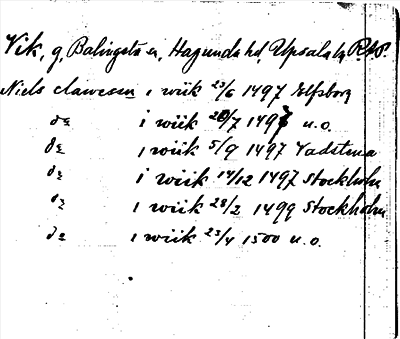 Vik, g, Balingsta sn, Hagunda hd, Upsala l.
Niels clawesen i wiik 23/6 1497 Elfsborg
do i wiik 20/7 1497 u.o.
do i wiik 5/9 1497 Vadstena
do i wiik 14/12 1497 Stockholm
do i wiik 28/2 1499 Stockholm
do i wiik 23/4 1500 u.o.